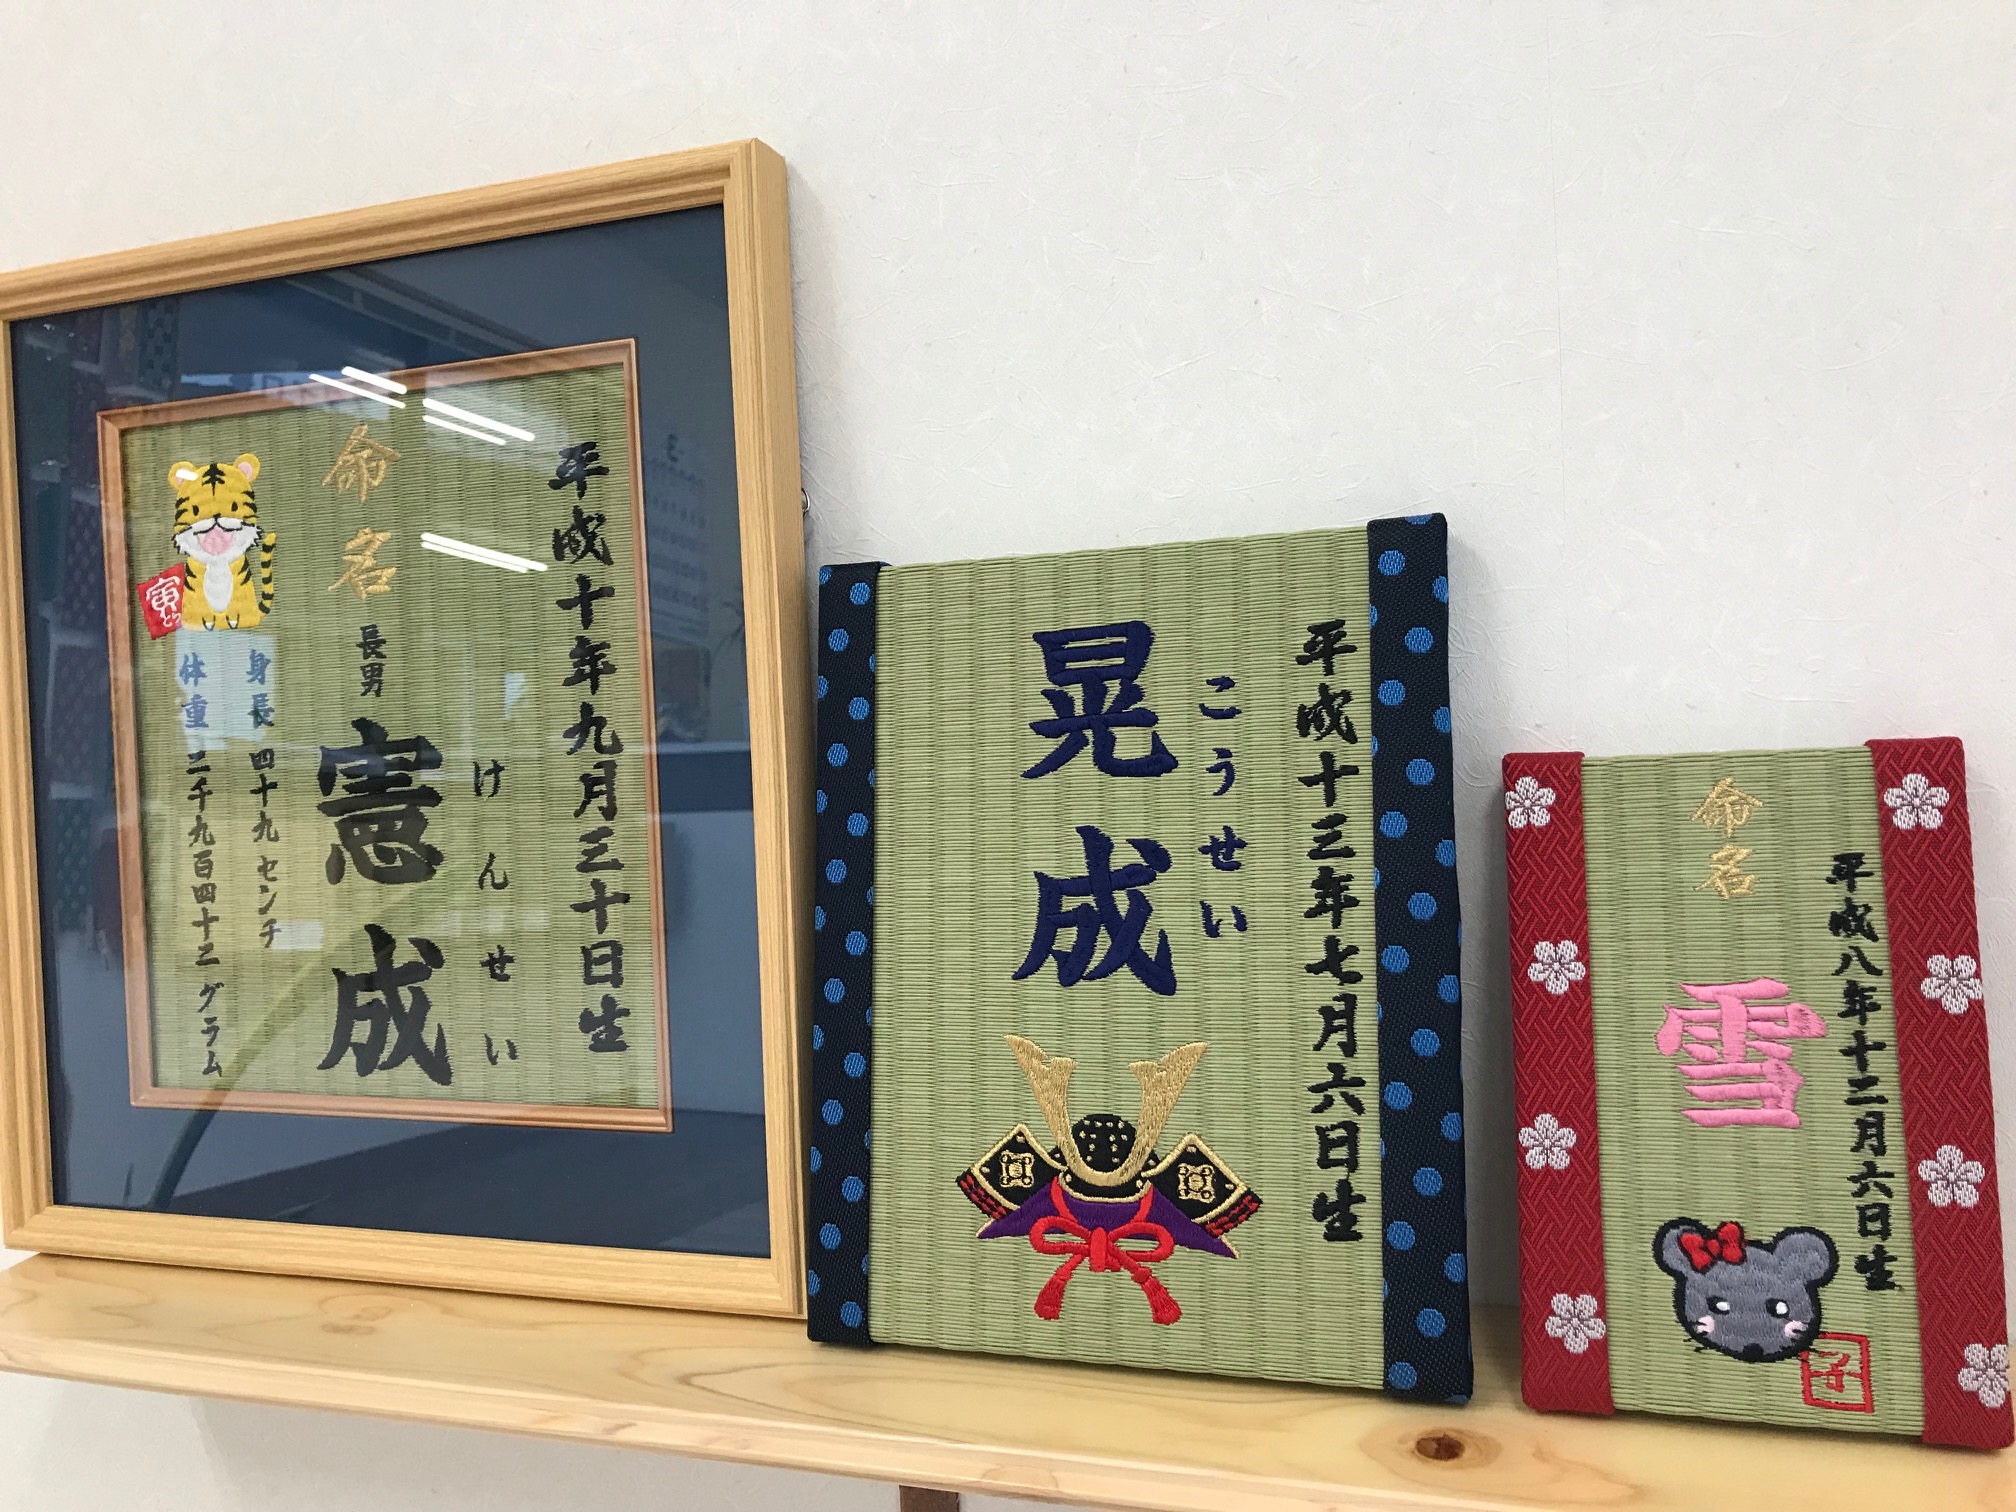 平成十年九月三十日生
命名
長男
憲成
けんせい
身長 四十九センチ
体重 二千九百四十二グラム
寅
とら
平成十三年七月六日生
こうせい
晃成
命名
平成八年十二月六日生
雪
子